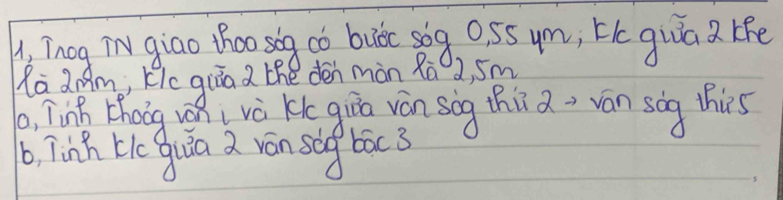 1, Trog TN giao thoa sóg có bước sóg 0,55 µm; k/c giữa 2 khe
là 2mm, k/c giữa 2 khe đến màn là 2,5m
a, Tính khoảg vân i và k/c giữa vân ság thứ 2 → vân ság thứ 5
b, Tính k/c giữa 2 vân ság bậc 3